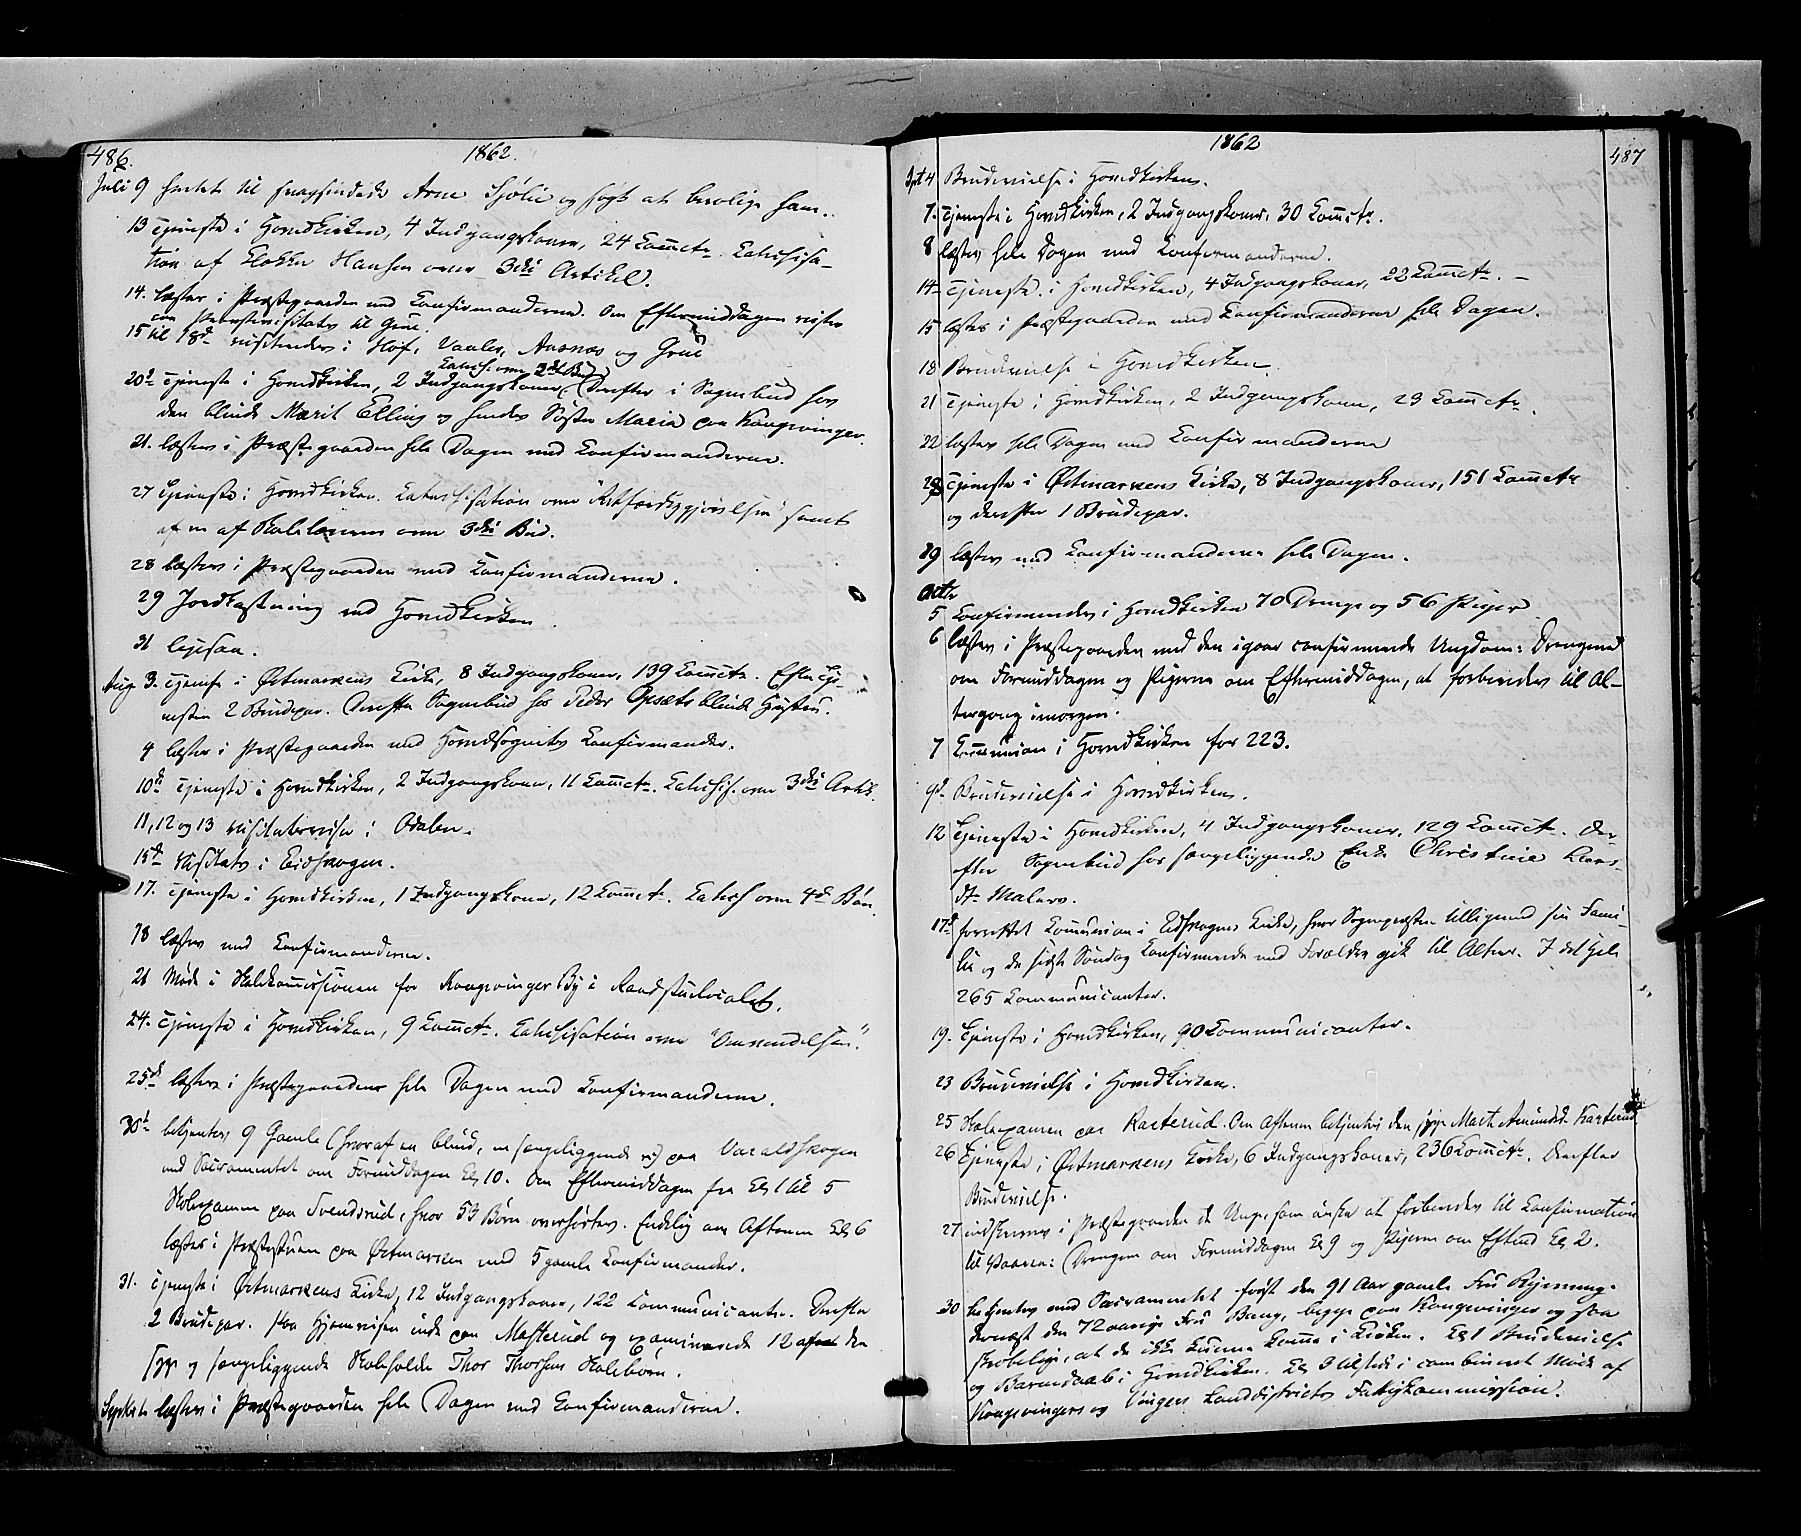 486.
1862.
Juli 9 hentet til fragsindede Arne Sjølie og søgt at berolige ham.
13 Tjeneste i Hovedkirken, 4 Indgangskoner, 24 Commcts. Catechisa-
tion af Klokker Hansen over 3die Artikel.
14. læstes i Præstegaarden med Confirmanderne. Om Eftermiddagen reiste
paa Provstevisitats til Grue.
15 til 18de visiteredes i Hof, Vaaler, Aasnæs og Grue
Catech. over 2det Bud
20de Tjeneste i Hovedkirken, 2 Indgangskoner, Derefter i Sognebud hos
den blinde Marit Elling og hendes Søster Maria paa Kongsvinger.
21. læstes i Præstegaarden hele Dagen med Confirmanderne.
27 Tjeneste i Hovedkirken. Catechisation over Retfærdiggjørelsen samt
af en af Skolelærerne over 3die Bud.
28 læstes i Præstegaarden med Confirmanderne.
29 Jordfæstning ved Hovedkirken
31 ligesaa.
Aug 3. Tjenste i Østmarkens Kirke, 8 Indgangskoner, 139 Commcts. Efter Tje-
nesten 2 Brudepar. Derefter Sognebud hos Peder Opsæts blinde Hustru.
4 læstes i Præstegaarden med Hovedsognets Confirmander.
10de Tjeneste i Hovedkirken, 2 Indgangskoner, 11 Commcts. Catechis. over 3die Artik.
11, 12 og 13 visitatsreise i Odalen.
15de Visitats i Eidskogen.
17. Tjeneste i Hovedkirken, 1 Indgangskone, 12 Commcts. Catech over 4de Bøn.
18 læstes med Confirmanderne.
21 Møde i Skolekommissionen for Kongsvinger By i Raadstuelocalet.
24. Tjeneste i Hovedkirken, 9 Commcts. Catechisation over "Omvendelsen".
25de læstes i Præstegaarden hele Dagen med Confirmanderne.
30te betjentes 9 Gamle (hvoraf en blind, en sengeliggende) paa Varaldskogen
med Sacramentet om Formiddagen Kl 10. Om Eftermiddagen fra Kl 1 til 5
Skolexamen paa Svendsrud, hvor 53 Børn overhørtes. Endelig om Aftenen Kl 6
læstes i Præstestuen paa Østmarken med 5 gamle Confirmander.
31. Tjeneste i Østmarkens Kirke, 12 Indgangskoner, 122 Communicanter. Derefter
2 Brudepar. Paa Hjemreisen inde paa Masterud og examinerede 12 af den
syge og sengeliggende Skoleholder Thor Thorsens Skolebørn.
Septbr 1 læstes i Præstegaarden hele Dagen med Confirmanderne.
1862
487
Sept 4 Brudevielse i Hovedkirken.
7. Tjeneste i Hovedkirken, 2 Indgangskoner, 30 Commcts.
8 læstes hele Dagen med Confirmanderne.
14 Tjeneste i Hovedkirken, 4 Indgangskoner, 22 Commcts. –
15 læstes i Præstegaarden med Confirmanderne hele Dagen.
18 Brudevielse i Hovedkirken.
21 Tjeneste i Hovedkirken, 2 Indgangskoner, 23 Commcts.
22 læstes hele Dagen med Confirmanderne
28 Tjeneste i Østmarkens Kirke, 8 Indgangskoner, 151 Commcts
og derefter 1 Brudepar.
29 læstes med Confirmanderne hele Dagen.
Octbr
5 Confirmeredes i Hovedkirken 70 Drenge og 56 Piger
6 læstes i Præstegaarden med den igaar confirmerede Ungdom: Drengene
om Formiddagen og Pigerne om Eftermiddagen, at forberedes til Al-
tergang imorgen.
7 Communion i Hovedkirken for 223.
9de Brudevielse i Hovedkirken.
12 Tjeneste i Hovedkirken, 4 Indgangskoner, 129 Commcts. Der-
efter Sognebud hos sengeliggende Enke Christine Lars-
dtr Malers.
17de forrettet Communion i Eidskogens Kirke, hvor Sognepresten tilligemed sin Fami-
lie og de sidste Søndag Confirmerede med Forældre gik til Alters. I det Hele
265 Communicanter.
19. Tjeneste i Hovedkirken, 90 Communicanter.
23 Brudevielse i Hovedkirken.
25 Skolexamen paa Karterud. Om Aftenen betjentes den syge Marte Amundsd. Karterud
26 Tjeneste i Østmarkens Kirke, 6 Indgangskoner, 236 Commcts. Derefter
Brudevielse.
27 indskreves i Præstegaarden de Unge, som ønske at forberedes til Confirmation
til Vaaren: Drengene om Formiddagen Kl 9 og Pigerne om Efterm Kl 2.
30 betjentes med Sacramentet først den 91 Aar gamle Fru Rynning,
dernæst den 72 aarige Fru Bang, begge paa Kongsvinger og saa
skrøbelige, at de ikke kunne komme i Kirken. Kl 1 Brudevielse
og Barnedaab i Hovedkirken. Kl 3 tilstede i combineret Møde af
Kongsvingers og Vingers Landdistricts Fattigkommission.